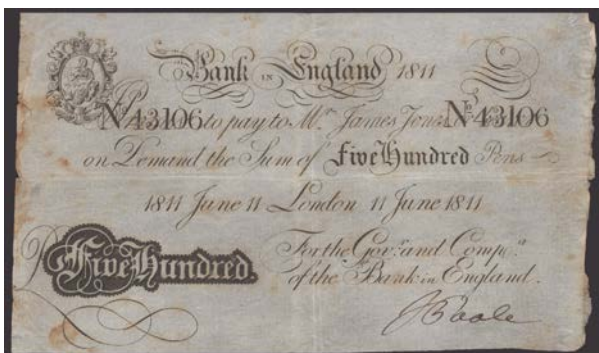 Bank in England 1811
No 43106 to pay to Mr. James Jones No 43106
on Demand the Sum of Five Hundred Pens
1811 June 11 London 11 June 1811
For the Govr. and Compa.
Five Hundred.
of the Bank in England.